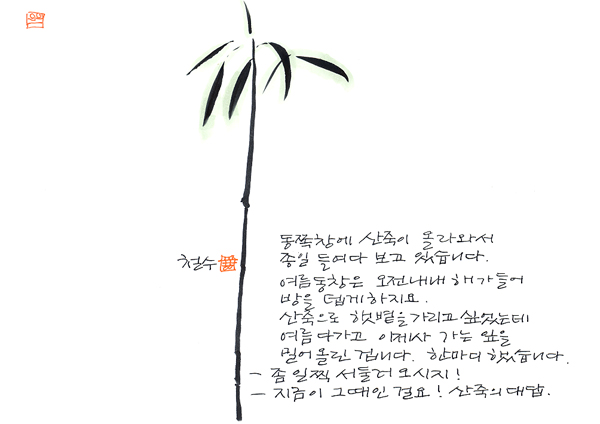 철수
동쪽창에 산죽이 올라와서
종일 들여다 보고 있습니다.
여름동창은 오전내내 해가들어
방을 덥게하지요.
산죽으로 햇볕을가리고 싶었는데
여름다가고 이제사 가는 잎을
밀어올린 겁니다. 한마디 했습니다.
- 좀 일찍 서둘러 오시지!
- 지금이 그때인 걸요! 산죽의대답.